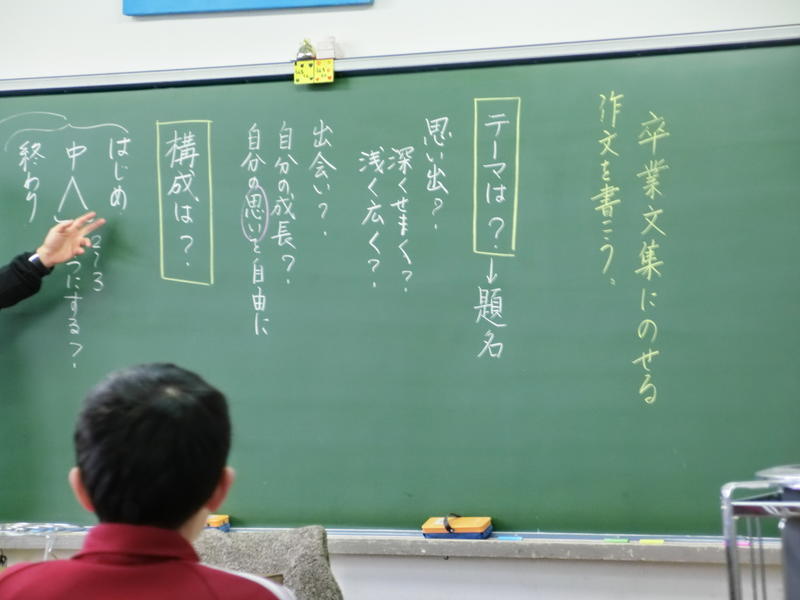 卒業文集にのせる
作文を書こう。
テーマは？→題名
思い出？
深くせまく？
浅く広く？
出会い？
自分の成長？
自分の思いを自由に
構成は？
はじめ
中
2〜3
つにする？
終わり